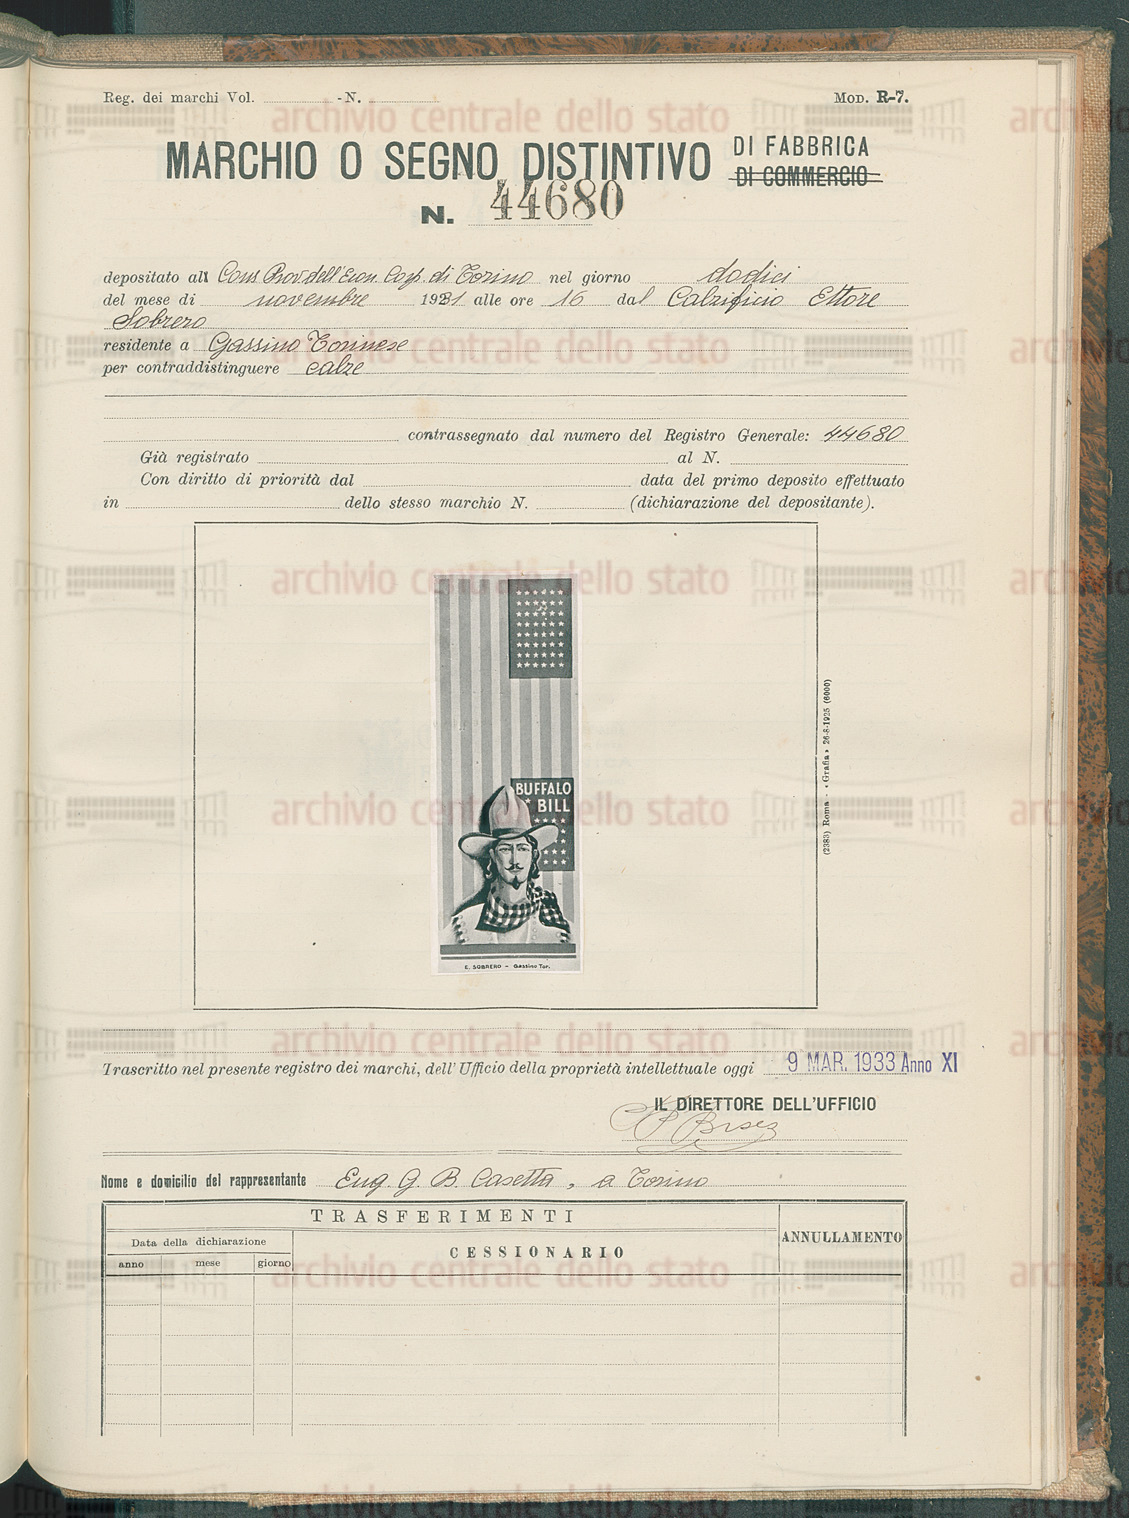 Reg. dei marchi Vol. - N.
MOD. R-7.
MARCHIO O SEGNO DISTINTIVO DI FABBRICA
DI COMMERCIO
N. 44680
depositato all Cons Prov dell'Econ. Corp. di Torino nel giorno dodici
del mese di novembre 1931 alle ore 16 dal Calzificio Ettore
Sobrero
residente a Gassino Torinese
per contraddistinguere calze
contrassegnato dal numero del Registro Generale: 44680
Già registrato al N.
Con diritto di priorità dal data del primo deposito effettuato
in dello stesso marchio N. (dichiarazione del depositante).
BUFFALO
BILL
E. SOBRERO - Gassino Tor.
(2383) Roma - «Grafia» 26-8-1925 (6000)
Trascritto nel presente registro dei marchi, dell'Ufficio della proprietà intellettuale oggi 9 MAR. 1933 Anno XI
IL DIRETTORE DELL'UFFICIO
Nome e domicilio del rappresentante Eug. G. B. Casetta, a Torino
TRASFERIMENTI
ANNULLAMENTO
Data della dichiarazione
CESSIONARIO
anno mese giorno
archivio centrale dello stato